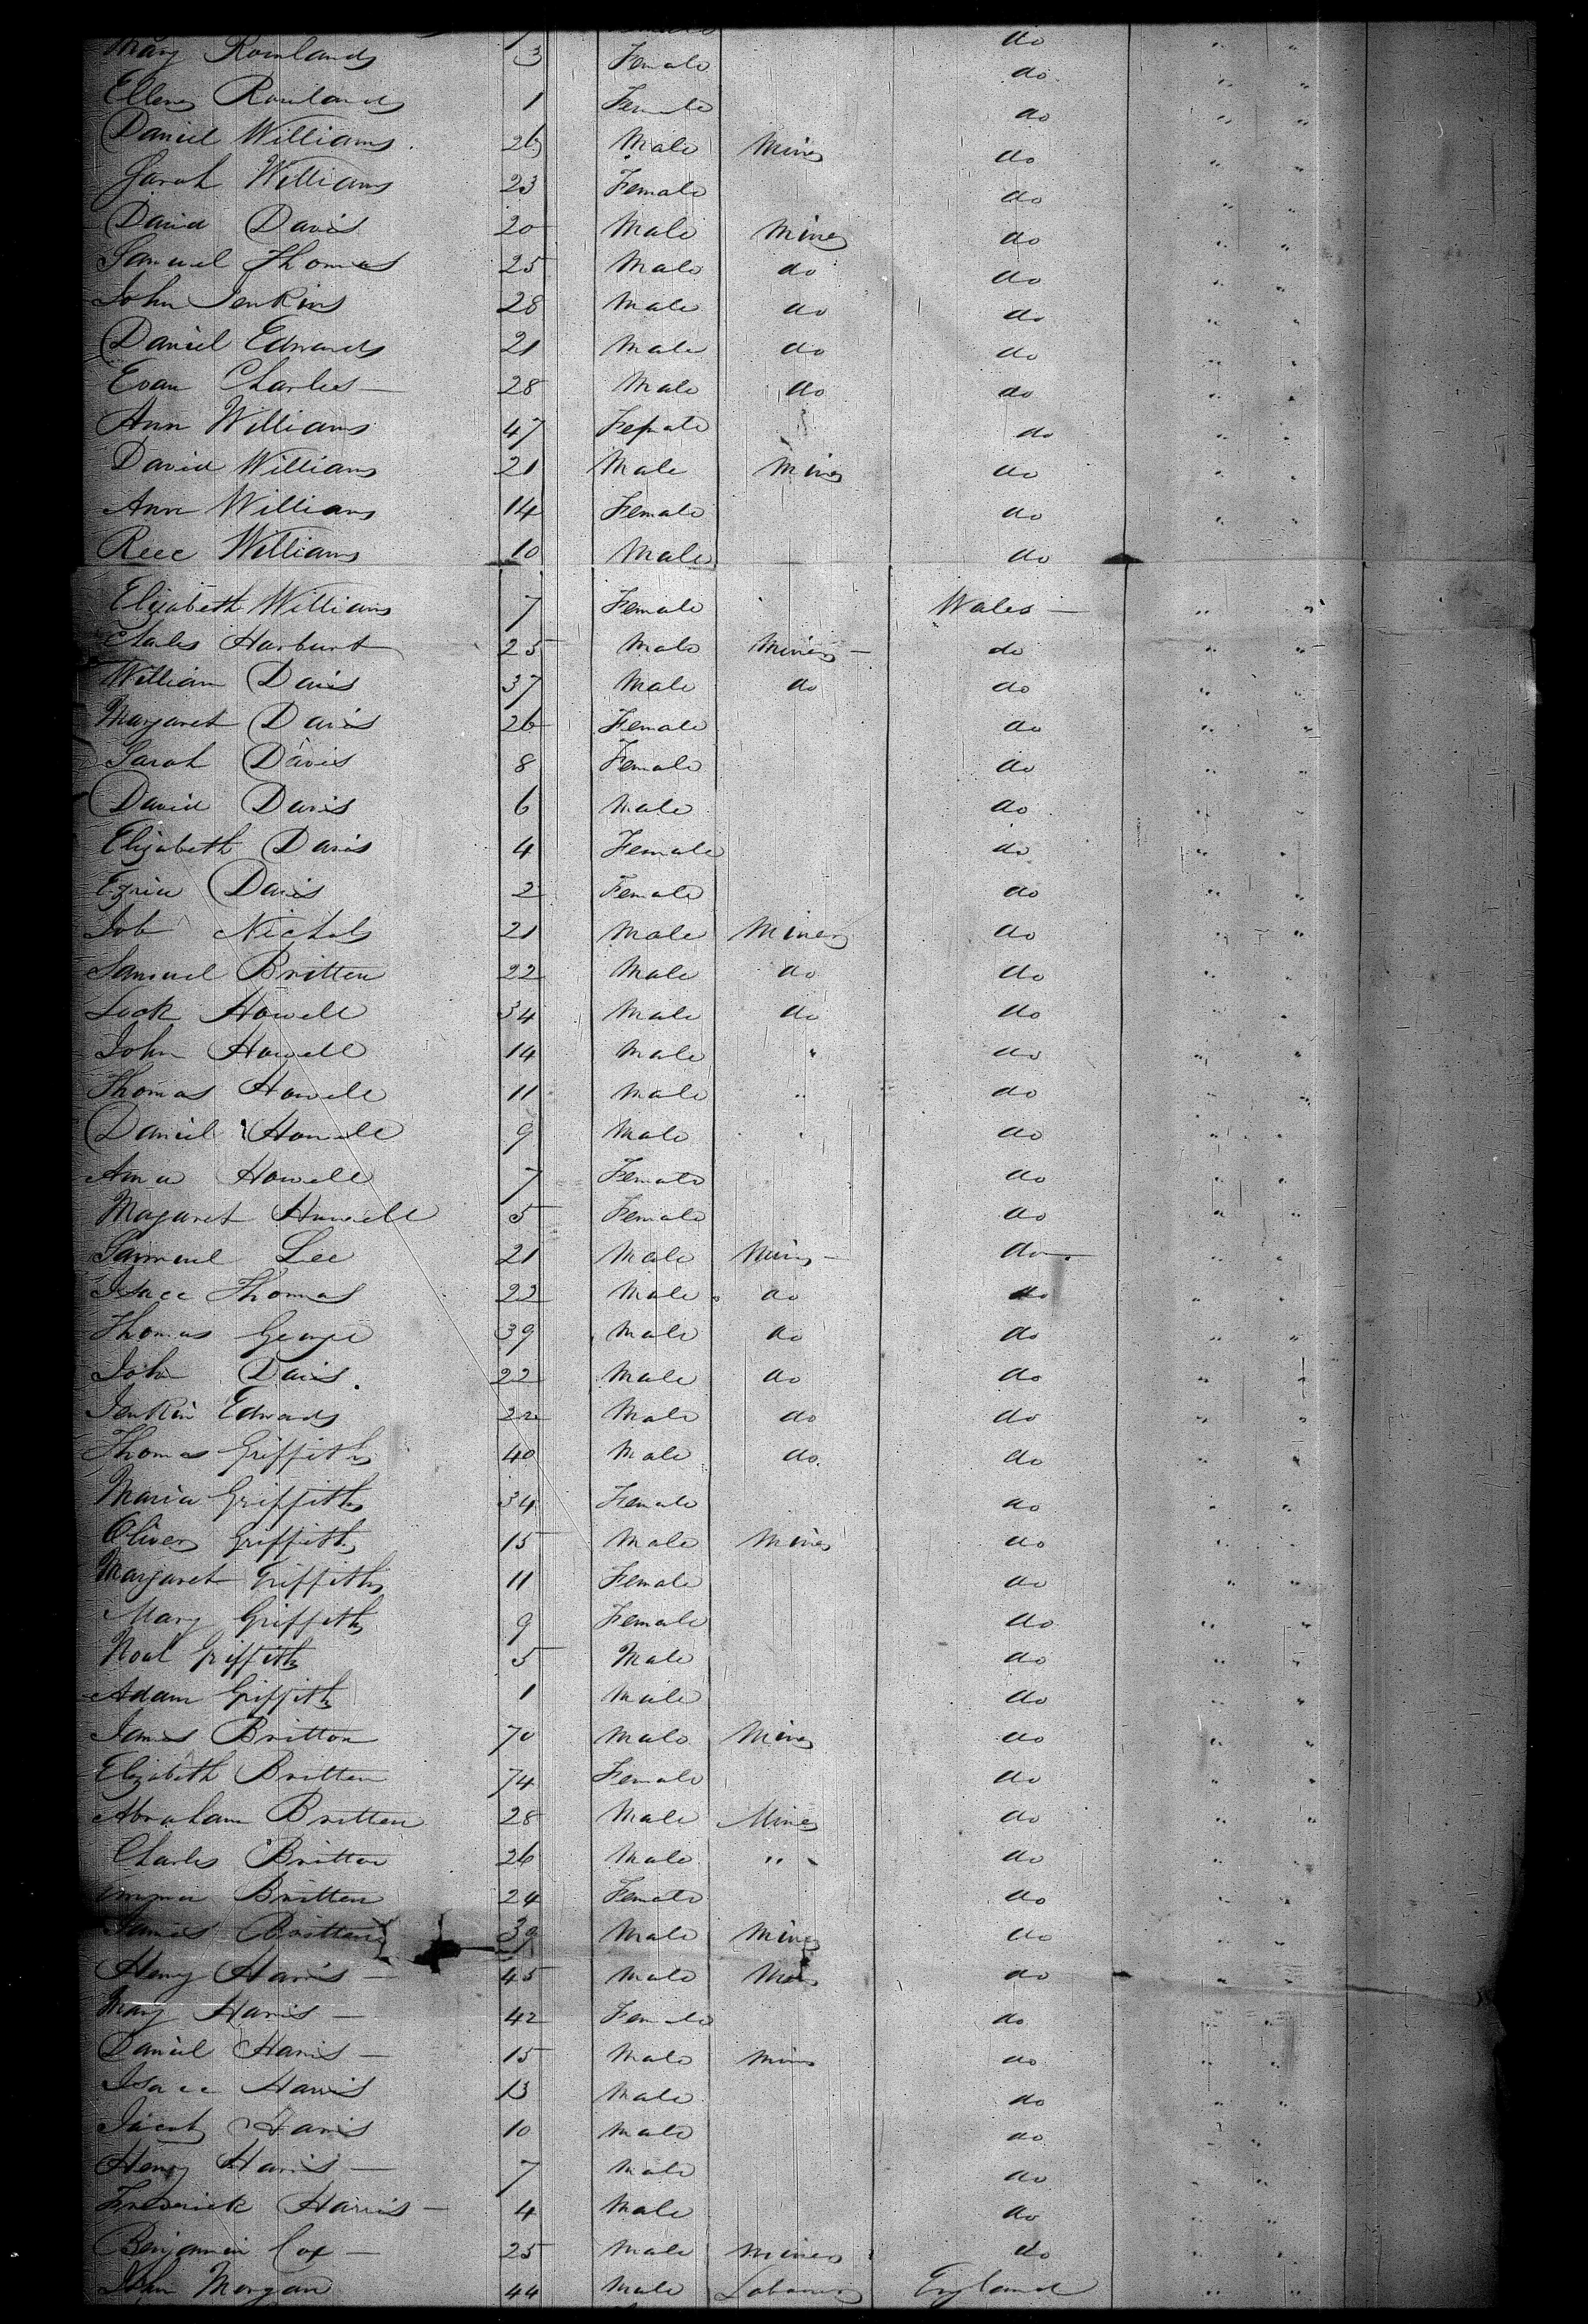 Mary Rowlands 3 Female do " "
Ellen Rowlands 1 Female do " "
Daniel Williams 26 Male Miner do " "
Sarah Williams 23 Female do " "
David Davis 20 Male Miner do " "
Samuel Thomas 25 Male do do " "
John Jenkins 28 Male do do " "
Daniel Edwards 21 Male do do " "
Evan Charles — 28 Male do do " "
Ann Williams 47 Female do " "
David Williams 21 Male Miner do " "
Ann Williams 14 Female do " "
Rece Williams 10 Male do
Elizabeth Williams 7 Female Wales — " "
Charles Harburt 25 Male Miner — do " "
William Davis 37 Male do do " "
Margaret Davis 26 Female do " "
Sarah Davis 8 Female do " "
David Davis 6 Male do " "
Elizabeth Davis 4 Female do " "
Davis 2 Female do " "
Job Nichols 21 Male Miner do " "
Samuel Britten 22 Male do do " "
Howell 34 Male do do " "
John Howell 14 Male " do " "
Thomas Howell 11 Male " do " "
Daniel Howell 9 Male " do " "
Anna Howell 7 Female do " "
Magaret Howell 5 Female do " "
Sammuel Lee 21 Male Miner — do " "
Isacc Thomas 22 Male do do " "
Thomas George 39 Male do do " "
John Davis 22 Male do do " "
Jenkin Edwards 22 Male do do " "
Thomas Griffiths 40 Male do do " "
Maria Griffiths 34 Female do " "
Oliver Griffiths 15 Male Miner do " "
Margaret Griffiths 11 Female do " "
Mary Griffiths 9 Female do " "
Noah Griffiths 5 Male do " "
Adam Griffiths 1 Male do " "
James Britton 70 Male Miner do " "
Elizabeth Britten 74 Female do " "
Abraham Britten 28 Male Miner do " "
Charles Britton 26 Male " do " "
Emma Britten 24 Female do " "
James Britten 39 Male Miner do " "
Henry Harris — 45 Male Miner do " "
Mary Harris — 42 Female do " "
Daniel Harris — 15 Male Miner do " "
Isacc Harris 13 Male do " "
Jacob Harris 10 Male do " "
Henry Harris — 7 Male do " "
Frederick Harris — 4 Male do " "
Benjamin Cox — 25 Male Miner do " "
John Morgan 44 Male Laborer England " "